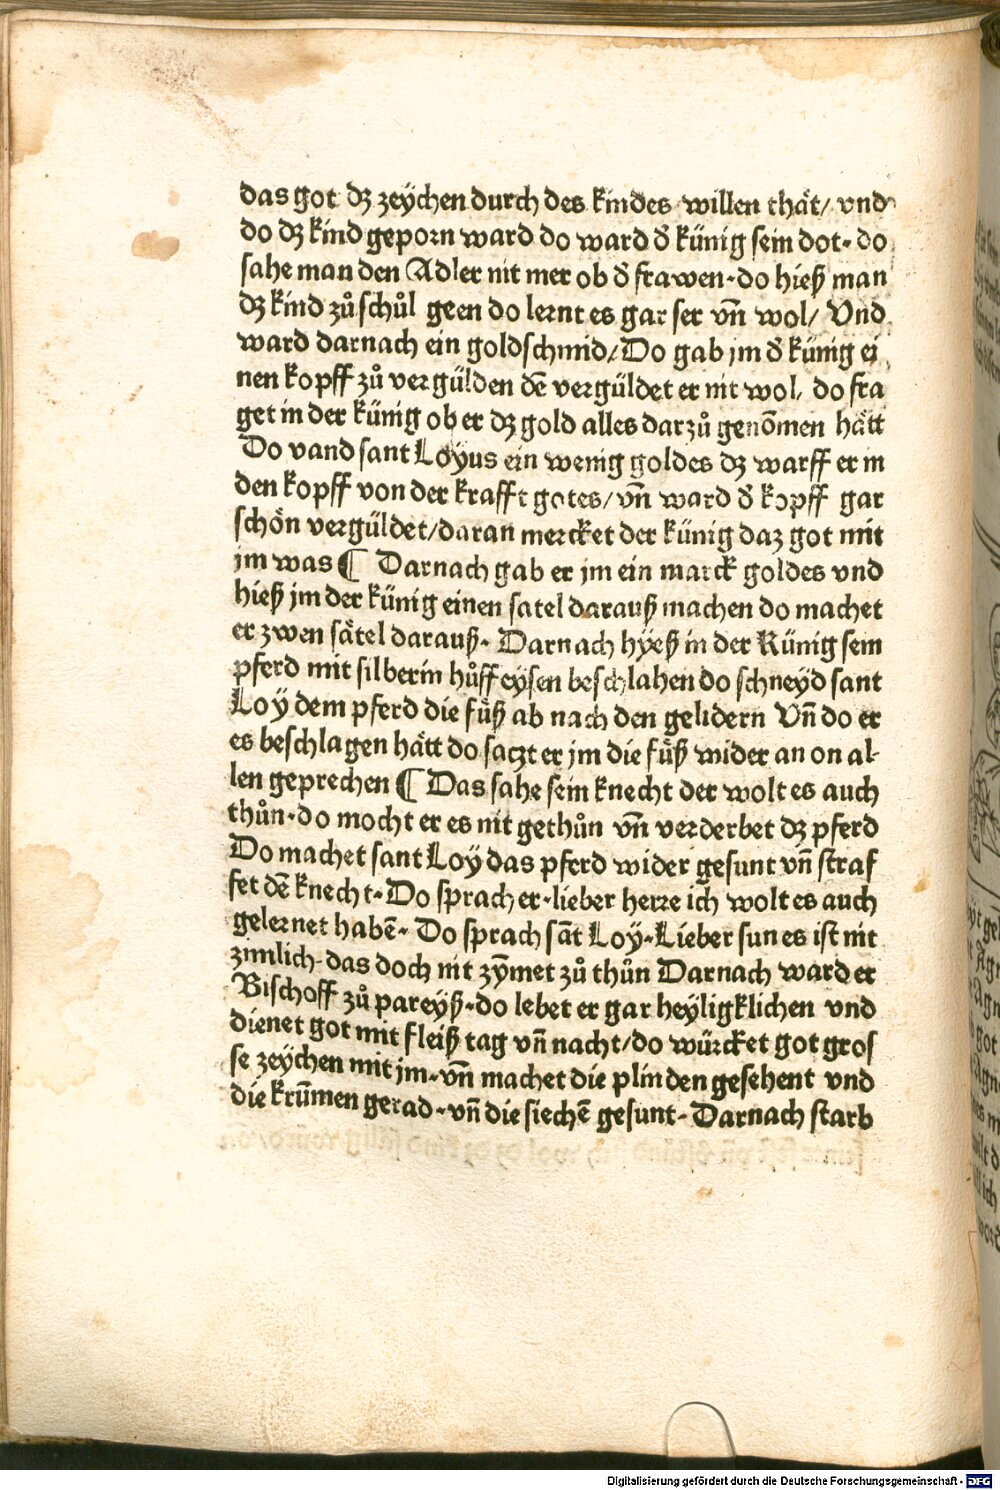 das got dz zeÿchen durch des kindes willen thät/ vnd
do dz kind geporn ward do ward d̕ künig sein dot· do
sahe man den Adler nit mer ob d̕ frawen·do hieß man
dz kind zů schůl geen do lernt es gar ser vn̄ wol/ Vnd
ward darnach ein goldschmid/Do gab jm d̕ künig ei
nen kopff zů vergülden dē vergüldet er nit wol/ do fra
get in der künig ob er dz gold alles darzů genōmen hätt
Do vand sant Loÿus ein wenig goldes dz warff er in
den kopff von der krafft gotes/ vn̄ ward d̕ kopff gar
schön vergüldet/daran mercket der künig daz got mit
jm was ¶ Darnach gab er jm ein marck goldes vnd
hieß jm der künig einen satel darauß machen do machet
er zwen sätel darauß· Darnach hÿeß in der Künig sein
pferd mit silberin hůffeÿsen beschlahen do schneÿd sant
Loÿ dem pferd die füß ab nach den gelidern Vn̄ do er
es beschlagen hätt do saczt er jm die füß wider an on al-
len geprechen ¶ Das sahe sein knecht der wolt es auch
thůn·do mocht er es nit gethůn vn̄ verderbet dz pferd
Do machet sant Loÿ das pferd wider gesunt vn̄ straf
fet dē knecht·Do sprach er·lieber herre ich wolt es auch
gelernet habē· Do sprach sāt Loÿ·Lieber sun es ist nit
zimlich·das doch nit zÿmet zů thůn Darnach ward er
Bischoff zů pareÿß·do lebet er gar heÿligklichen vnd
dienet got mit fleiß tag vn̄ nacht/do würcket got gros
se zeÿchen mit jm·vn̄ machet die plinden gesehent vnd
die krūmen gerad·vn̄ die siechē gesunt·Darnach starb
Digitalisierung gefördert durch die Deutsche Forschungsgemeinschaft - DFG